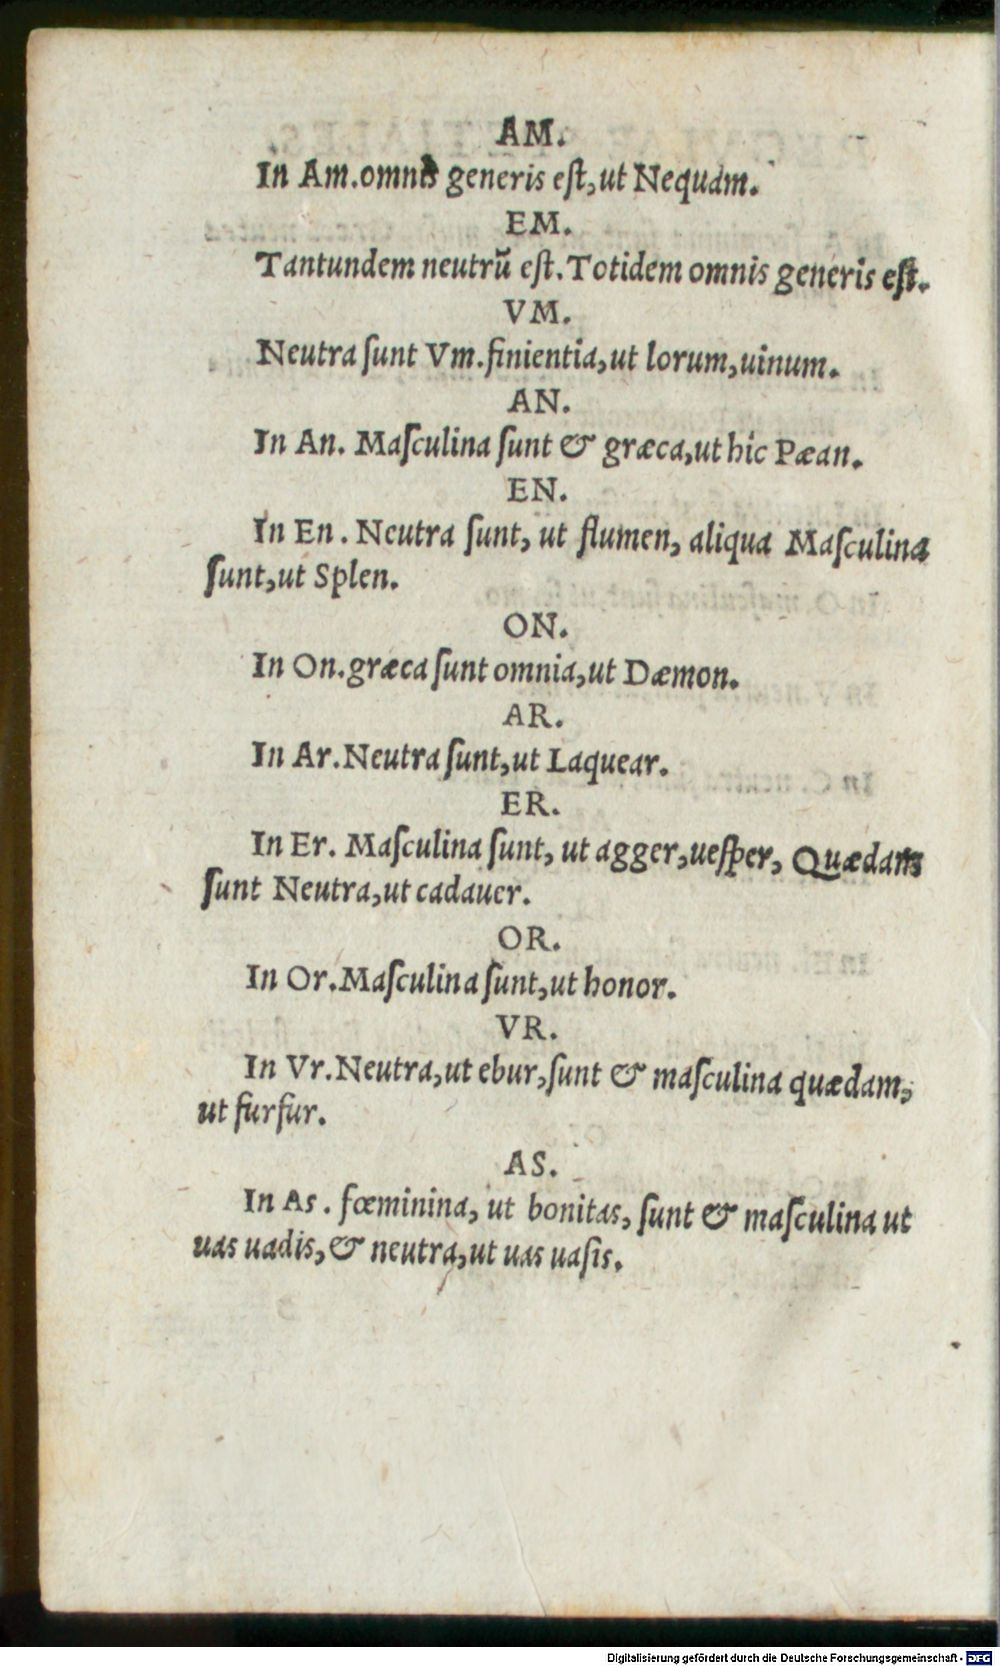 AM.
In Am.omnis generis eſt,ut Nequam.
EM.
Tantundem neutrũ eſt.Totidem omnis generis eſt.
VM.
Neutra ſunt Vm.finientia,ut lorum,uinum.
AN.
In An. Maſculina ſunt & græca,ut hic Pæan.
EN.
In En. Neutra ſunt, ut flumen, aliqua Maſculina
ſunt,ut Splen.
ON.
In On.græca ſunt omnia,ut Dæmon.
AR.
In Ar.Neutra ſunt,ut Laquear.
ER.
In Er. Maſculina ſunt, ut agger,ueſper, Quædam
ſunt Neutra,ut cadauer.
OR.
In Or.Maſculina ſunt,ut honor.
VR.
In Vr.Neutra,ut ebur,ſunt & maſculina quædam,
ut furfur.
AS.
In As. fœminina, ut bonitas, ſunt & maſculina ut
uas uadis,& neutra,ut uas uaſis.
Digitalisierung gefördert durch die Deutsche Forschungsgemeinschaft - DFG